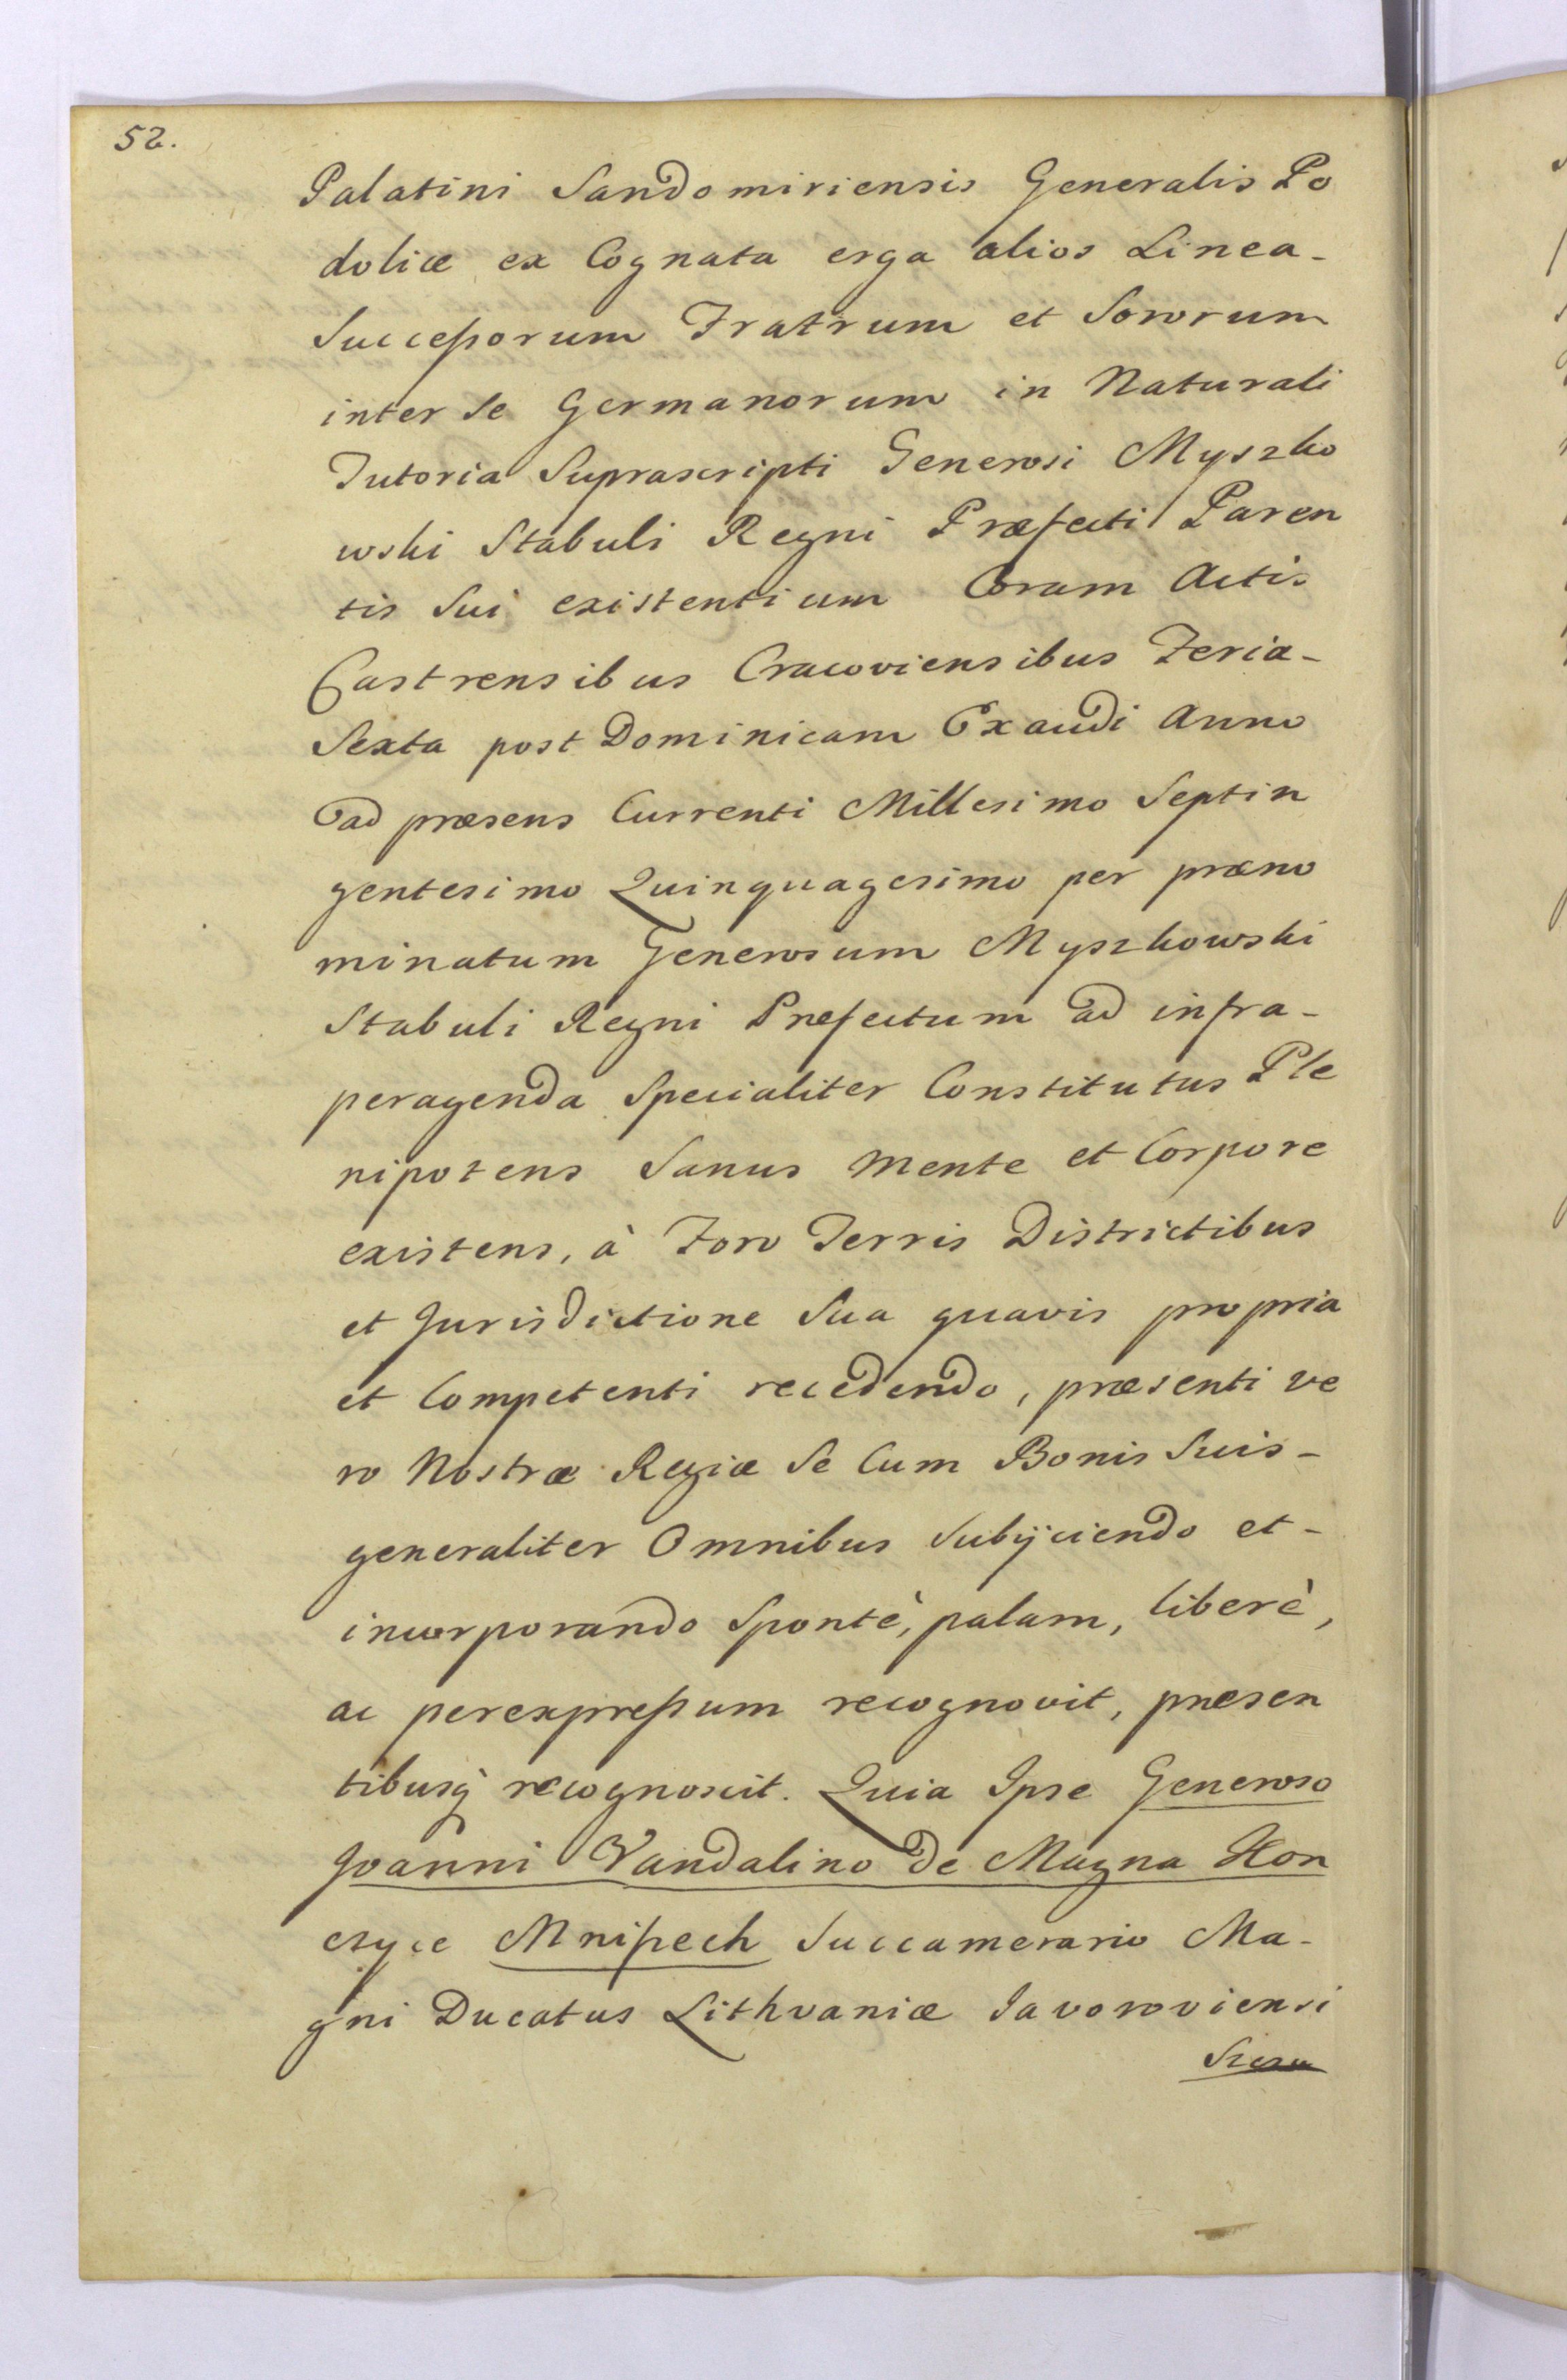 52.
Palatini Sandomiriensis Generalis Po
doliæ ex Cognata erga alios Linea-
Succeſsorum Fratrum et Sororum
inter Se Germanorum in Naturali
Tutoria Suprascripti Generosi Myszko
wski Stabuli Regni Præfecti Paren
tis Sui existentium Coram Actis
Castrensibus Cracoviensibus Feria-
Sexta post Dominicam Exaudi Anno
ad præsens Currenti Millesimo Septin
gentesimo Quinquagesimo per præno
minatum Generosum Myszkowski
Stabuli Regni Præfectum ad infra-
peragenda Specialiter Constitutus Ple
nipotens Sanus Mente et Corpore
existens, à Foro Terris Districtibus
et Jurisdictione Sua quavis propria
et Competenti recedendo, præsenti ve
ro Nostræ Regiæ Se Cum Bonis Suis-
generaliter Omnibus Subijciendo et-
incorporando Spontè, palam, liberè,
ac perexpreſsum recognovit, præsen
tibusq̀ recognoscit. Quia Ipse Generoso
Joanni Vandalino de Magna Kon
czyce Mniſzech Succamerario Ma-
gni Ducatus Lithvaniæ Javoroviensi